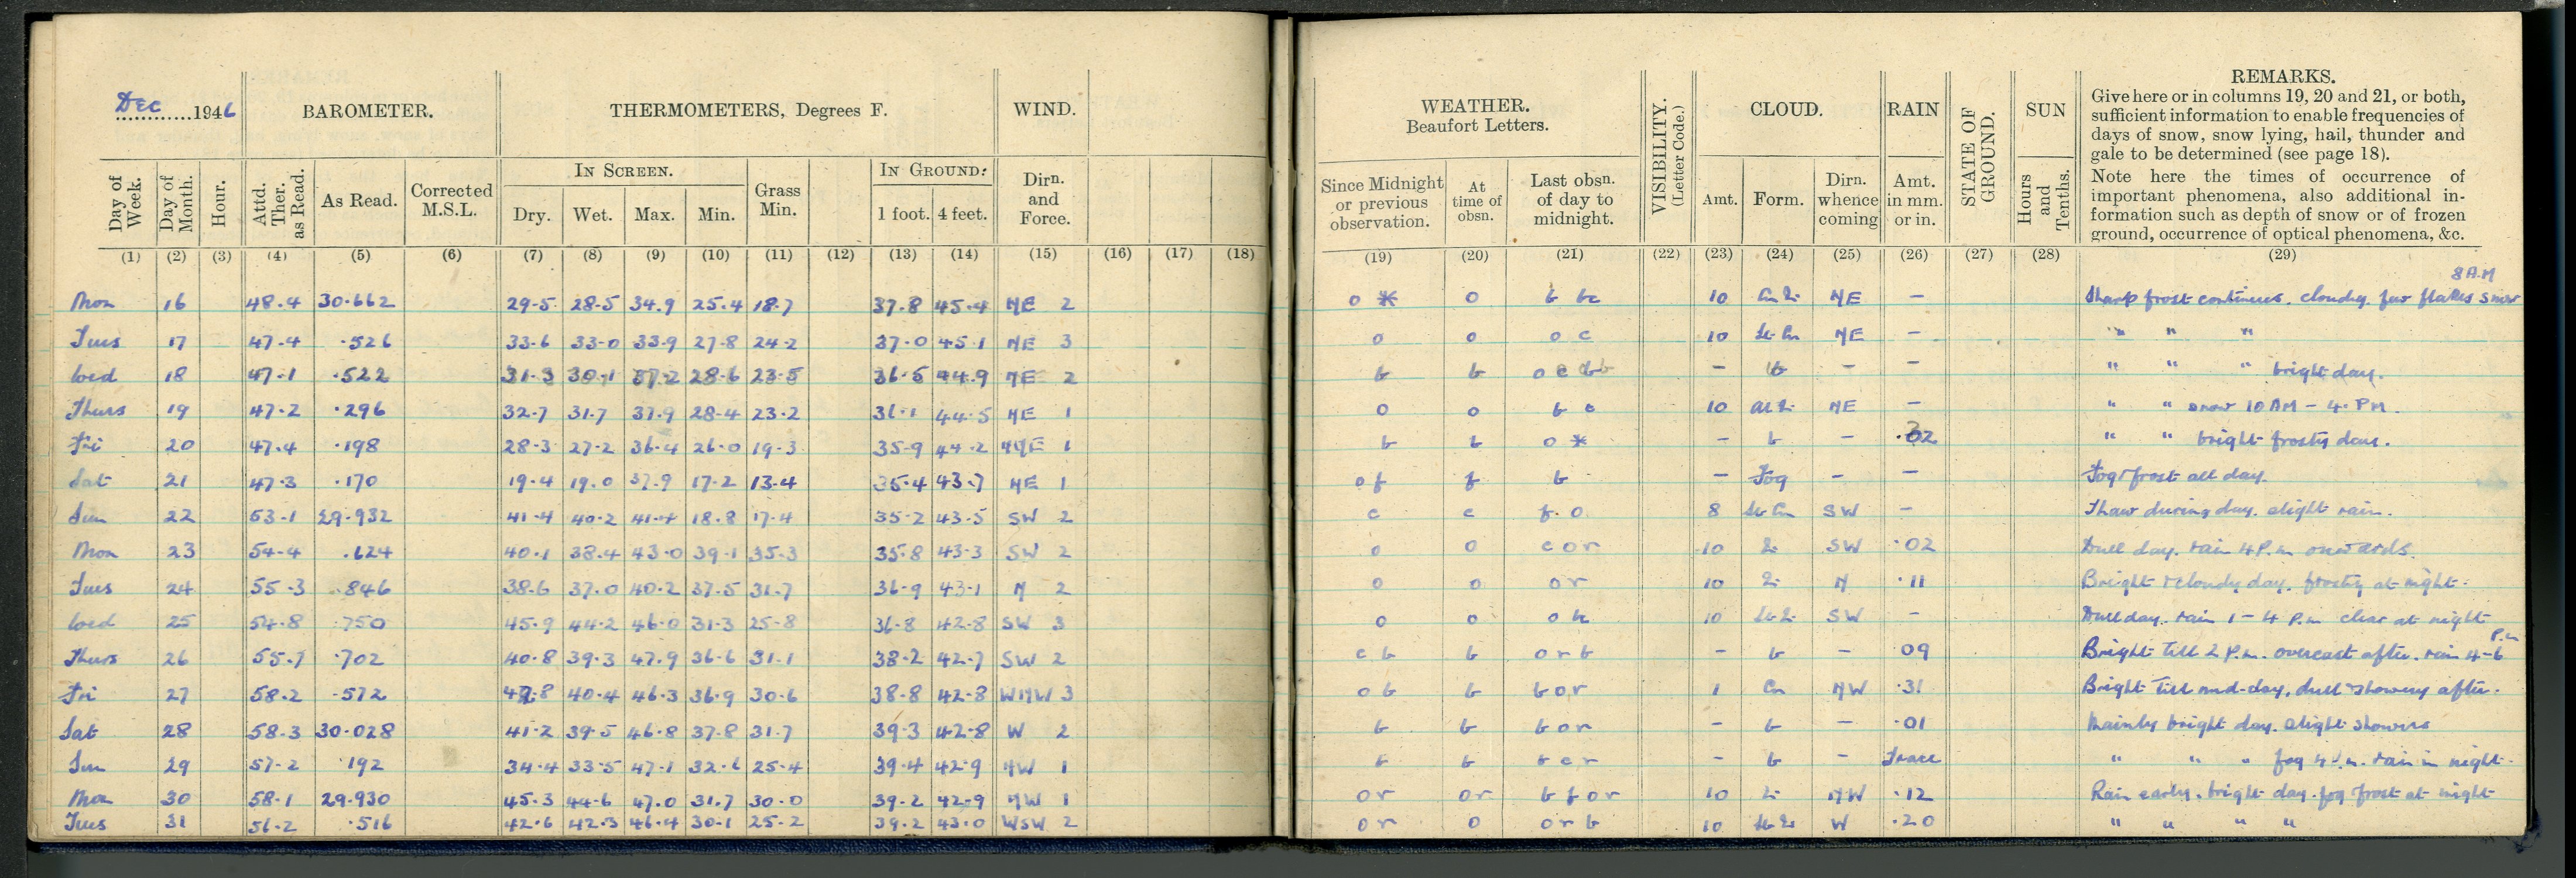 Dec 1946
BAROMETER. THERMOMETERS, Degrees F. WIND.
IN SCREEN. IN GROUND:
Day of Week. Day of Month. Hour. Attd. Ther. as Read. As Read. Corrected M.S.L. Dry. Wet. Max. Min. Grass Min. 1 foot. 4 feet. Dirn. and Force.
(1) (2) (3) (4) (5) (6) (7) (8) (9) (10) (11) (12) (13) (14) (15) (16) (17) (18)
Mon 16 48.4 30.662 29.5 28.5 34.9 25.4 18.7 37.8 45.4 NE 2
Tues 17 47.4 .526 33.6 33.0 33.9 27.8 24.2 37.0 45.1 NE 3
Wed 18 47.1 .522 31.3 30.1 37.2 28.6 23.5 36.5 44.9 NE 2
Thurs 19 47.2 .296 32.7 31.7 37.9 28.4 23.2 36.1 44.5 NE 1
Fri 20 47.4 .198 28.3 27.2 36.4 26.0 19.3 35.9 44.2 NNE 1
Sat 21 47.3 .170 19.4 19.0 37.9 17.2 13.4 35.4 43.7 NE 1
Sun 22 53.1 29.932 41.4 40.2 41.4 18.8 17.4 35.2 43.5 SW 2
Mon 23 54.4 .624 40.1 38.4 43.0 39.1 35.3 35.8 43.3 SW 2
Tues 24 55.3 .846 38.6 37.0 40.2 37.5 31.7 36.9 43.1 N 2
Wed 25 54.8 .750 45.9 44.2 46.0 31.3 25.8 36.8 42.8 SW 3
Thurs 26 55.7 .702 40.8 39.3 47.9 36.6 31.1 38.2 42.7 SW 2
Fri 27 58.2 .572 40.4 46.3 36.9 30.6 38.8 42.8 WNW 3
Sat 28 58.3 30.028 41.2 39.5 46.8 37.8 31.7 39.3 42.8 W 2
Sun 29 57.2 192 34.4 33.5 47.1 32.6 25.4 39.4 42.9 NW 1
Mon 30 58.1 29.930 45.3 44.6 47.0 31.7 30.0 39.2 42.9 NW 1
Tues 31 56.2 .516 42.6 42.3 46.4 30.1 25.2 39.2 43.0 WSW 2
WEATHER. Beaufort Letters. VISIBILITY. (Letter Code.) CLOUD. RAIN STATE OF GROUND. SUN REMARKS.
Give here or in columns 19, 20 and 21, or both,
sufficient information to enable frequencies of
days of snow, snow lying, hail, thunder and
gale to be determined (see page 18).
Note here the times of occurrence of
important phenomena, also additional in-
formation such as depth of snow or of frozen
ground, occurrence of optical phenomena, &c.
Since Midnight or previous observation. At time of obsn. Last obsn. of day to midnight. Amt. Form. Dirn. whence coming Amt. in mm. or in. Hours and Tenths.
(19) (20) (21) (22) (23) (24) (25) (26) (27) (28) (29)
8 A.M
o * o b bc 10 NE - Sharp frost continues. cloudy. few flakes snow
o o o c 10 NE - " " "
b b o c b - b - - " " " bright day.
o o b c 10 NE - " " snow 10 AM - 4. PM.
b b o * - b - .02 " " bright frosty day.
o f f b - Fog - - Fog & frost all day.
c c f. o 8 SW - Thaw during day. slight rain.
o o c o r 10 SW .02 Dull day. rain 4 P.m onwards.
o o o r 10 N .11 Bright & cloudy day. frosty at night.
o o o 10 SW - Dull day. rain 1 - 4 P.m clear at night
c b b o r b - b - 09 Bright till 2 P.m. overcast after. rain 4-6 P.m
o b b b o r 1 Cu NW .31 Bright till mid-day, dull & showery after.
b b b o r - b - .01 Mainly bright day. slight showers
b b b c r - b - Trace " " " fog 4 P.m. rain in night.
o r o r b f o r 10 NW .12 Rain early. bright day. fog & frost at night
o r o o r b 10 W .20 " " " "